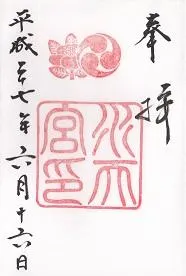 奉拝
水天
宮印
平成二十七年六月十六日